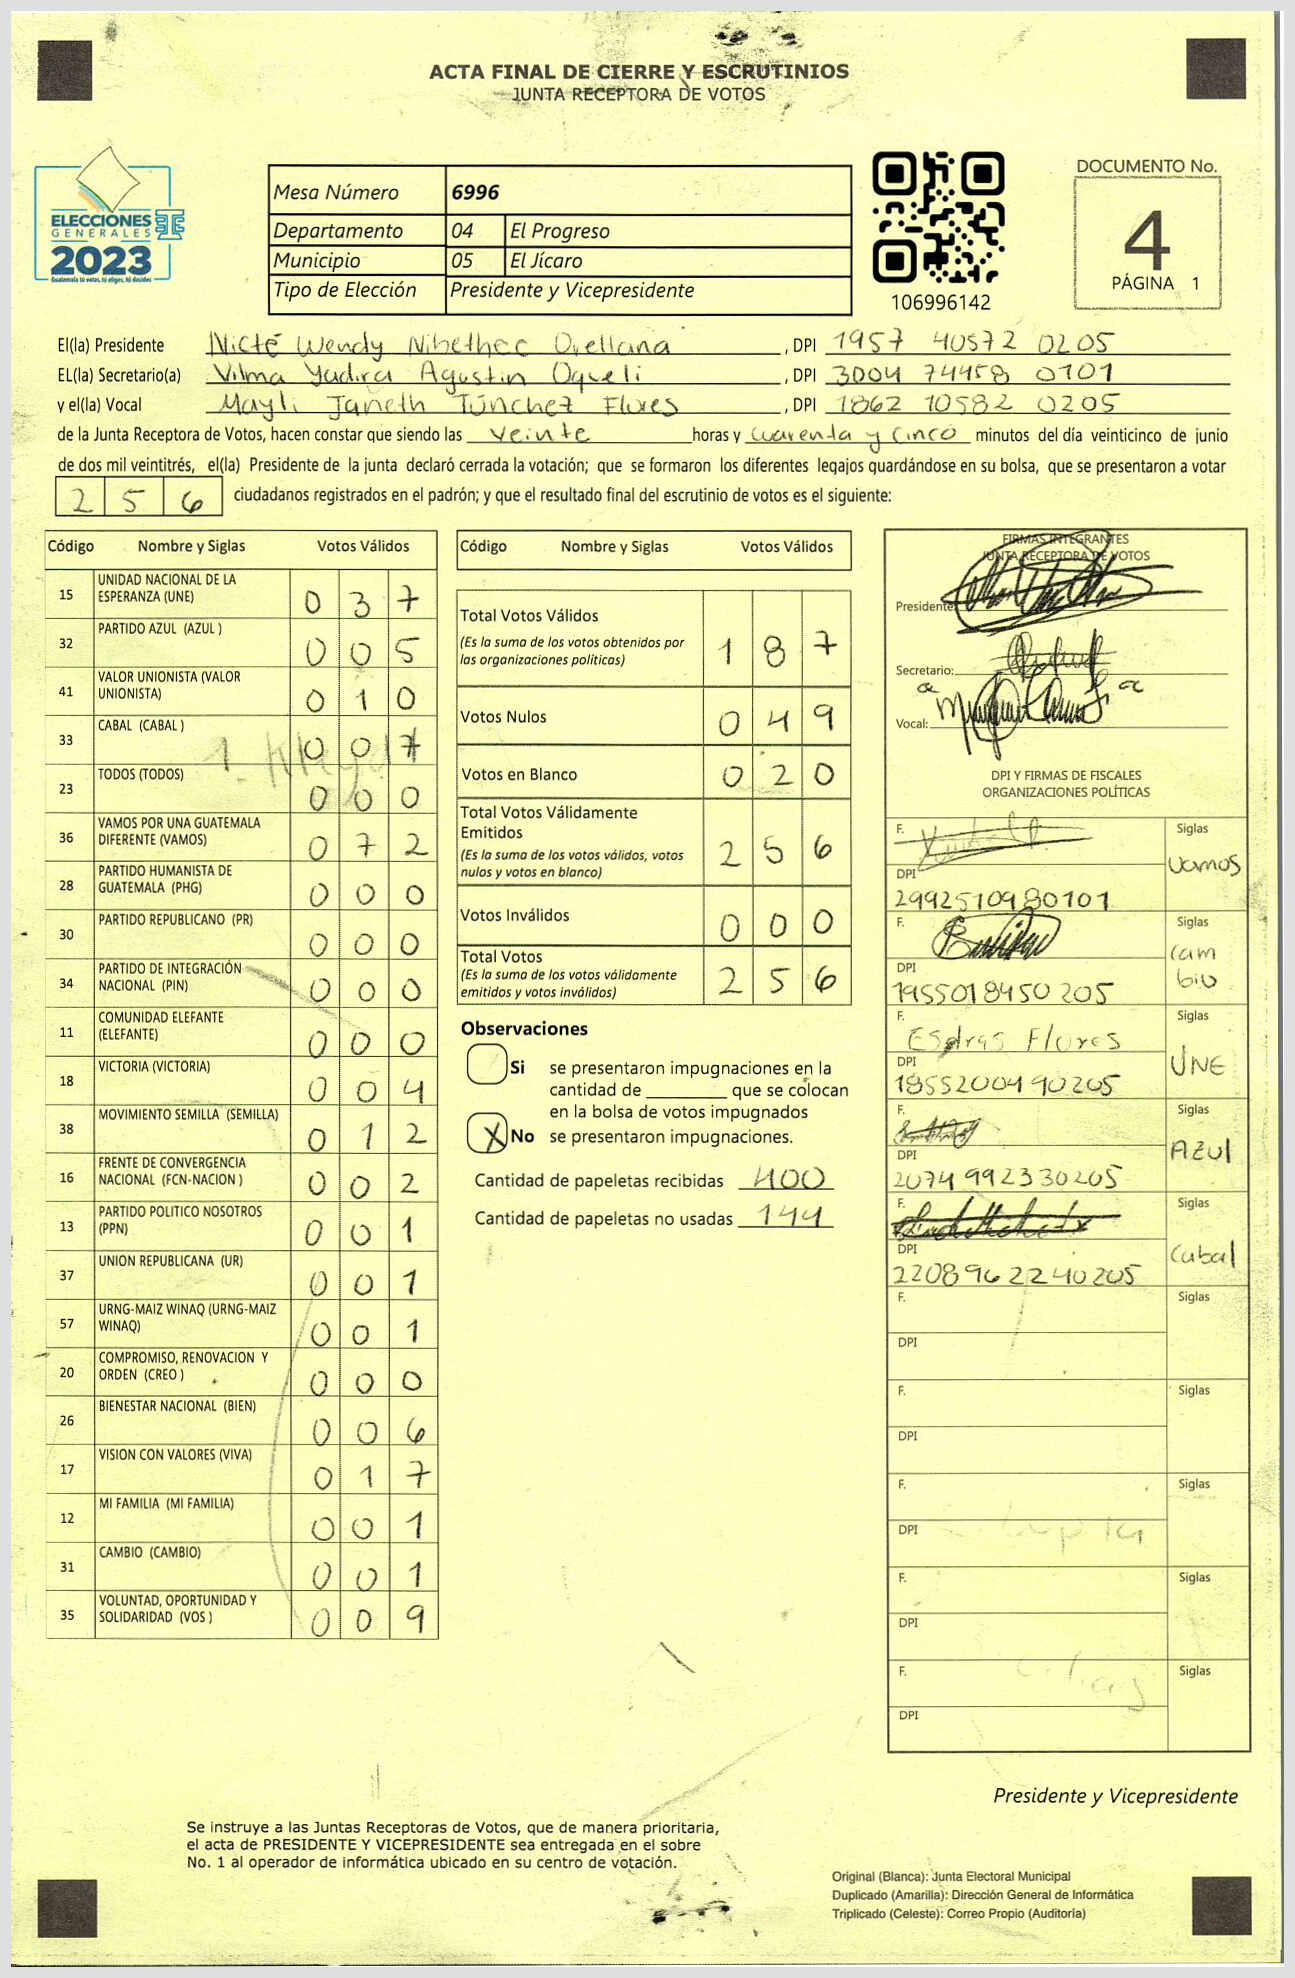 ACTA FINAL DE CIERRE Y ESCRUTINIOS
JUNTA RECEPTORA DE VOTOS
ELECCIONES
GENERALES
2023
Guatemala tú votas, tú eliges, tú decides
Mesa Número 6996
Departamento 04 El Progreso
Municipio 05 El Jícaro
Tipo de Elección Presidente y Vicepresidente
106996142
DOCUMENTO No.
4
PÁGINA 1
El(la) Presidente Nicté Wendy Nibethec Orellana, DPI 1957 40572 0205
EL(la) Secretario(a) Vilma Yadira Agustin Oqueli, DPI 3004 74458 0101
y el(la) Vocal Mayli Janeth Túnchez Flores, DPI 1862 10582 0205
de la Junta Receptora de Votos, hacen constar que siendo las veinte horas y cuarenta y cinco minutos del día veinticinco de junio
de dos mil veintitrés, el(la) Presidente de la junta declaró cerrada la votación; que se formaron los diferentes legajos guardándose en su bolsa, que se presentaron a votar
256 ciudadanos registrados en el padrón; y que el resultado final del escrutinio de votos es el siguiente:
Código Nombre y Siglas Votos Válidos
15 UNIDAD NACIONAL DE LA ESPERANZA (UNE) 0 3 7
32 PARTIDO AZUL (AZUL ) 0 0 5
41 VALOR UNIONISTA (VALOR UNIONISTA) 0 1 0
33 CABAL (CABAL ) 0 0 7
23 TODOS (TODOS) 0 0 0
36 VAMOS POR UNA GUATEMALA DIFERENTE (VAMOS) 0 7 2
28 PARTIDO HUMANISTA DE GUATEMALA (PHG) 0 0 0
30 PARTIDO REPUBLICANO (PR) 0 0 0
34 PARTIDO DE INTEGRACIÓN NACIONAL (PIN) 0 0 0
11 COMUNIDAD ELEFANTE (ELEFANTE) 0 0 0
18 VICTORIA (VICTORIA) 0 0 4
38 MOVIMIENTO SEMILLA (SEMILLA) 0 1 2
16 FRENTE DE CONVERGENCIA NACIONAL (FCN-NACION ) 0 0 2
13 PARTIDO POLITICO NOSOTROS (PPN) 0 0 1
37 UNION REPUBLICANA (UR) 0 0 1
57 URNG-MAIZ WINAQ (URNG-MAIZ WINAQ) 0 0 1
20 COMPROMISO, RENOVACION Y ORDEN (CREO ) 0 0 0
26 BIENESTAR NACIONAL (BIEN) 0 0 6
17 VISION CON VALORES (VIVA) 0 1 7
12 MI FAMILIA (MI FAMILIA) 0 0 1
31 CAMBIO (CAMBIO) 0 0 1
35 VOLUNTAD, OPORTUNIDAD Y SOLIDARIDAD (VOS ) 0 0 9
Código Nombre y Siglas Votos Válidos
Total Votos Válidos 1 8 7
(Es la suma de los votos obtenidos por
las organizaciones políticas)
Votos Nulos 0 4 9
Votos en Blanco 0 2 0
Total Votos Válidamente
Emitidos 2 5 6
(Es la suma de los votos válidos, votos
nulos y votos en blanco)
Votos Inválidos 0 0 0
Total Votos 2 5 6
(Es la suma de los votos válidamente
emitidos y votos inválidos)
Observaciones
Si se presentaron impugnaciones en la
cantidad de ________ que se colocan
en la bolsa de votos impugnados
X No se presentaron impugnaciones.
Cantidad de papeletas recibidas 400
Cantidad de papeletas no usadas 144
FIRMAS INTEGRANTES
JUNTA RECEPTORA DE VOTOS
Presidente:
Secretario:
Vocal:
DPI Y FIRMAS DE FISCALES
ORGANIZACIONES POLÍTICAS
F. Siglas
Vamos
DPI
2992510980101
F. Siglas
Cam
bio
DPI
1955018450205
F. Esdras Flores Siglas
UNE
DPI
1855200490205
F. Siglas
AZUl
DPI
2074992330205
F. Siglas
Cabal
DPI
2208962240205
F. Siglas
DPI
F. Siglas
DPI
F. Siglas
DPI
F. Siglas
DPI
F. Siglas
DPI
Presidente y Vicepresidente
Se instruye a las Juntas Receptoras de Votos, que de manera prioritaria,
el acta de PRESIDENTE Y VICEPRESIDENTE sea entregada en el sobre
No. 1 al operador de informática ubicado en su centro de votación.
Original (Blanca): Junta Electoral Municipal
Duplicado (Amarilla): Dirección General de Informática
Triplicado (Celeste): Correo Propio (Auditoría)